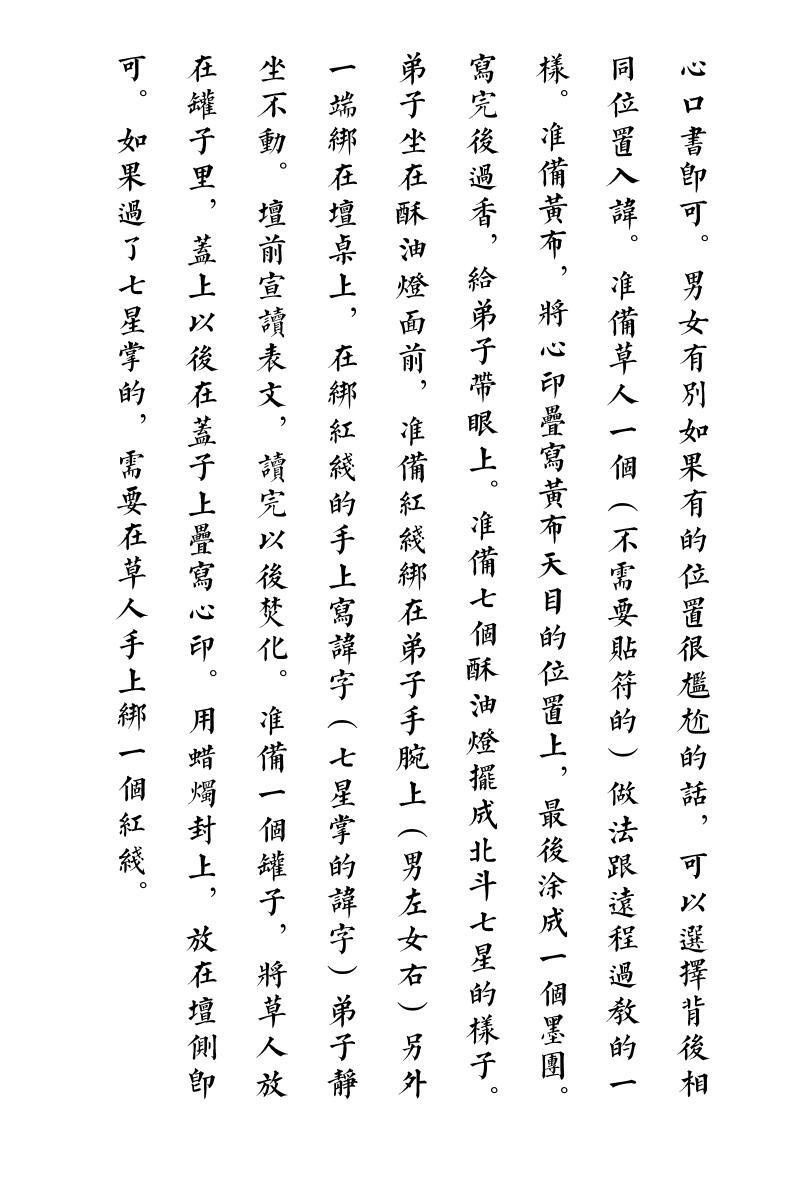 心口書卽可。男女有別如果有的位置很尷尬的話，可以選擇背後相
同位置入諱。准備草人一個（不需要貼符的）做法跟遠程過教的一
樣。准備黃布，將心印疊寫黃布天目的位置上，最後涂成一個墨團。
寫完後過香，給弟子帶眼上。准備七個酥油燈擺成北斗七星的樣子。
弟子坐在酥油燈面前，准備紅綫綁在弟子手腕上（男左女右）另外
一端綁在壇桌上，在綁紅綫的手上寫諱字（七星掌的諱字）弟子靜
坐不動。壇前宣讀表文，讀完以後焚化。准備一個罐子，將草人放
在罐子里，蓋上以後在蓋子上疊寫心印。用蜡燭封上，放在壇側卽
可。如果過了七星掌的，需要在草人手上綁一個紅綫。